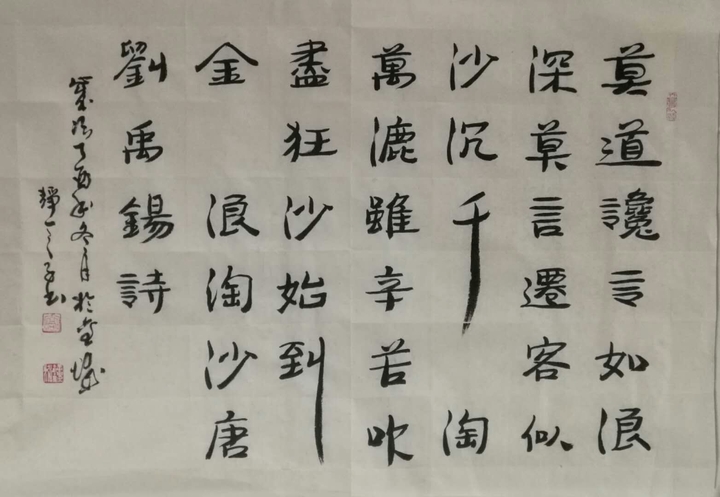 莫道讒言如浪
深莫言遷客似
沙沉千 淘
萬漉雖辛苦吹
盡狂沙始到
金 浪淘沙唐
劉禹錫詩
歲次丁酉年冬月於金城
靜 书